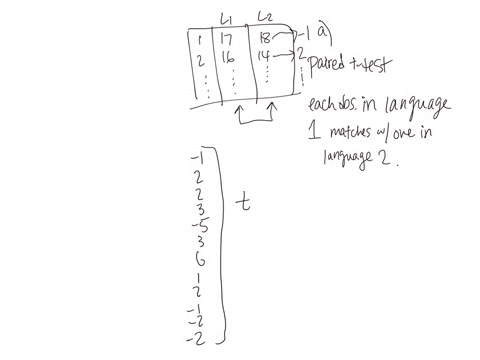 L1 L2
1 17 18 → -1 a)
2 16 14 → 2
⋮ ⋮ ⋮ ⋮
paired t-test
each obs. in language
1 matches w/ one in
language 2.
-1
2
2
3
-5
3
6
1
2
-1
-2
-2
t